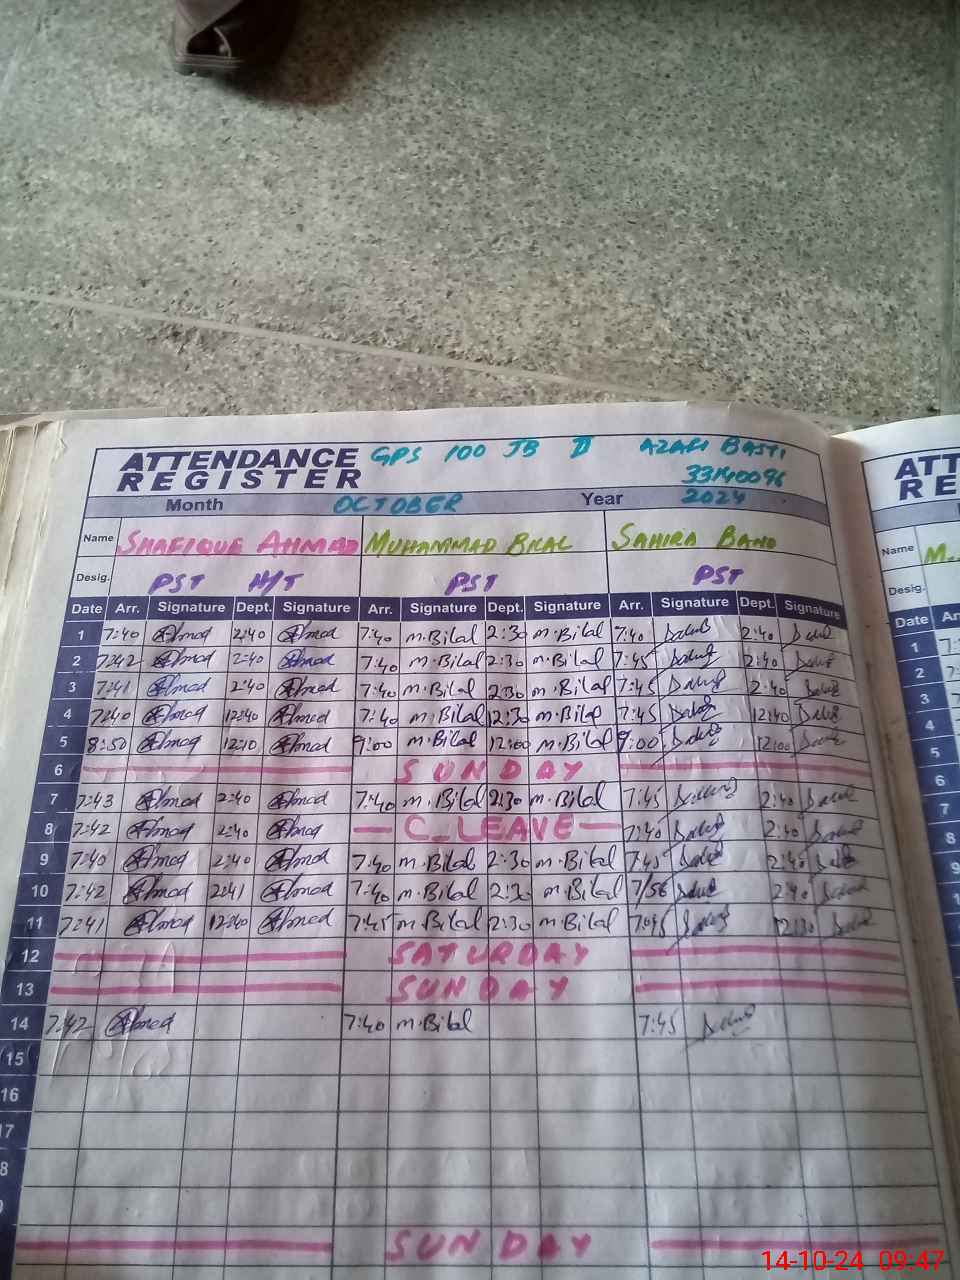 ATTENDANCE REGISTER GPS 100 JB II AZAFI BASTI
33140096
Month OCTOBER Year 2024
Name SHAFIQUE AHMAD MUHAMMAD BILAL SAHIRA BANO
Desig. PST H/T PST PST
Date Arr. Signature Dept. Signature Arr. Signature Dept. Signature Arr. Signature Dept. Signature
1 7:40 Ahmad 2:40 Ahmad 7:40 M.Bilal 2:30 M.Bilal 7:40 2:40
2 7:42 Ahmad 2:40 Ahmad 7:40 M.Bilal 2:30 M.Bilal 7:45 2:40
3 7:41 Ahmad 2:40 Ahmad 7:40 M.Bilal 2:30 M.Bilal 7:45 2:40
4 7:40 Ahmad 12:40 Ahmad 7:40 M.Bilal 12:30 M.Bilal 7:45 12:40
5 8:50 Ahmad 12:10 Ahmad 9:00 M.Bilal 12:00 M.Bilal 9:00 12:00
6 SUNDAY
7 7:43 Ahmad 2:40 Ahmad 7:40 M.Bilal 2:30 M.Bilal 7:45 2:40
8 7:42 Ahmad 2:40 Ahmad C_LEAVE 7:40 2:40
9 7:40 Ahmad 2:40 Ahmad 7:40 M.Bilal 2:30 M.Bilal 7:45 2:45
10 7:42 Ahmad 2:41 Ahmad 7:40 M.Bilal 2:30 M.Bilal 7/56 2:40
11 7:41 Ahmad 12:40 Ahmad 7:45 M.Bilal 12:30 M.Bilal 7:45 12:30
12 SATURDAY
13 SUNDAY
14 7:42 Ahmad 7:40 M.Bilal 7:45
15
16
17
8
SUNDAY
ATT
RE
Name M.
Desig.
Date Ar
1
2
3
4
5
6
7
8
9
14-10-24 09:47